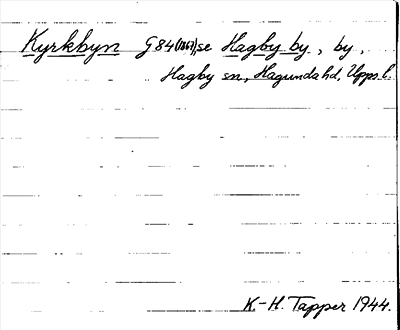 Kyrkbyn G 84 (1867), se Hagby by, by,
Hagby sn, Hagunda hd, Upps l.
K.-H. Tapper 1944.